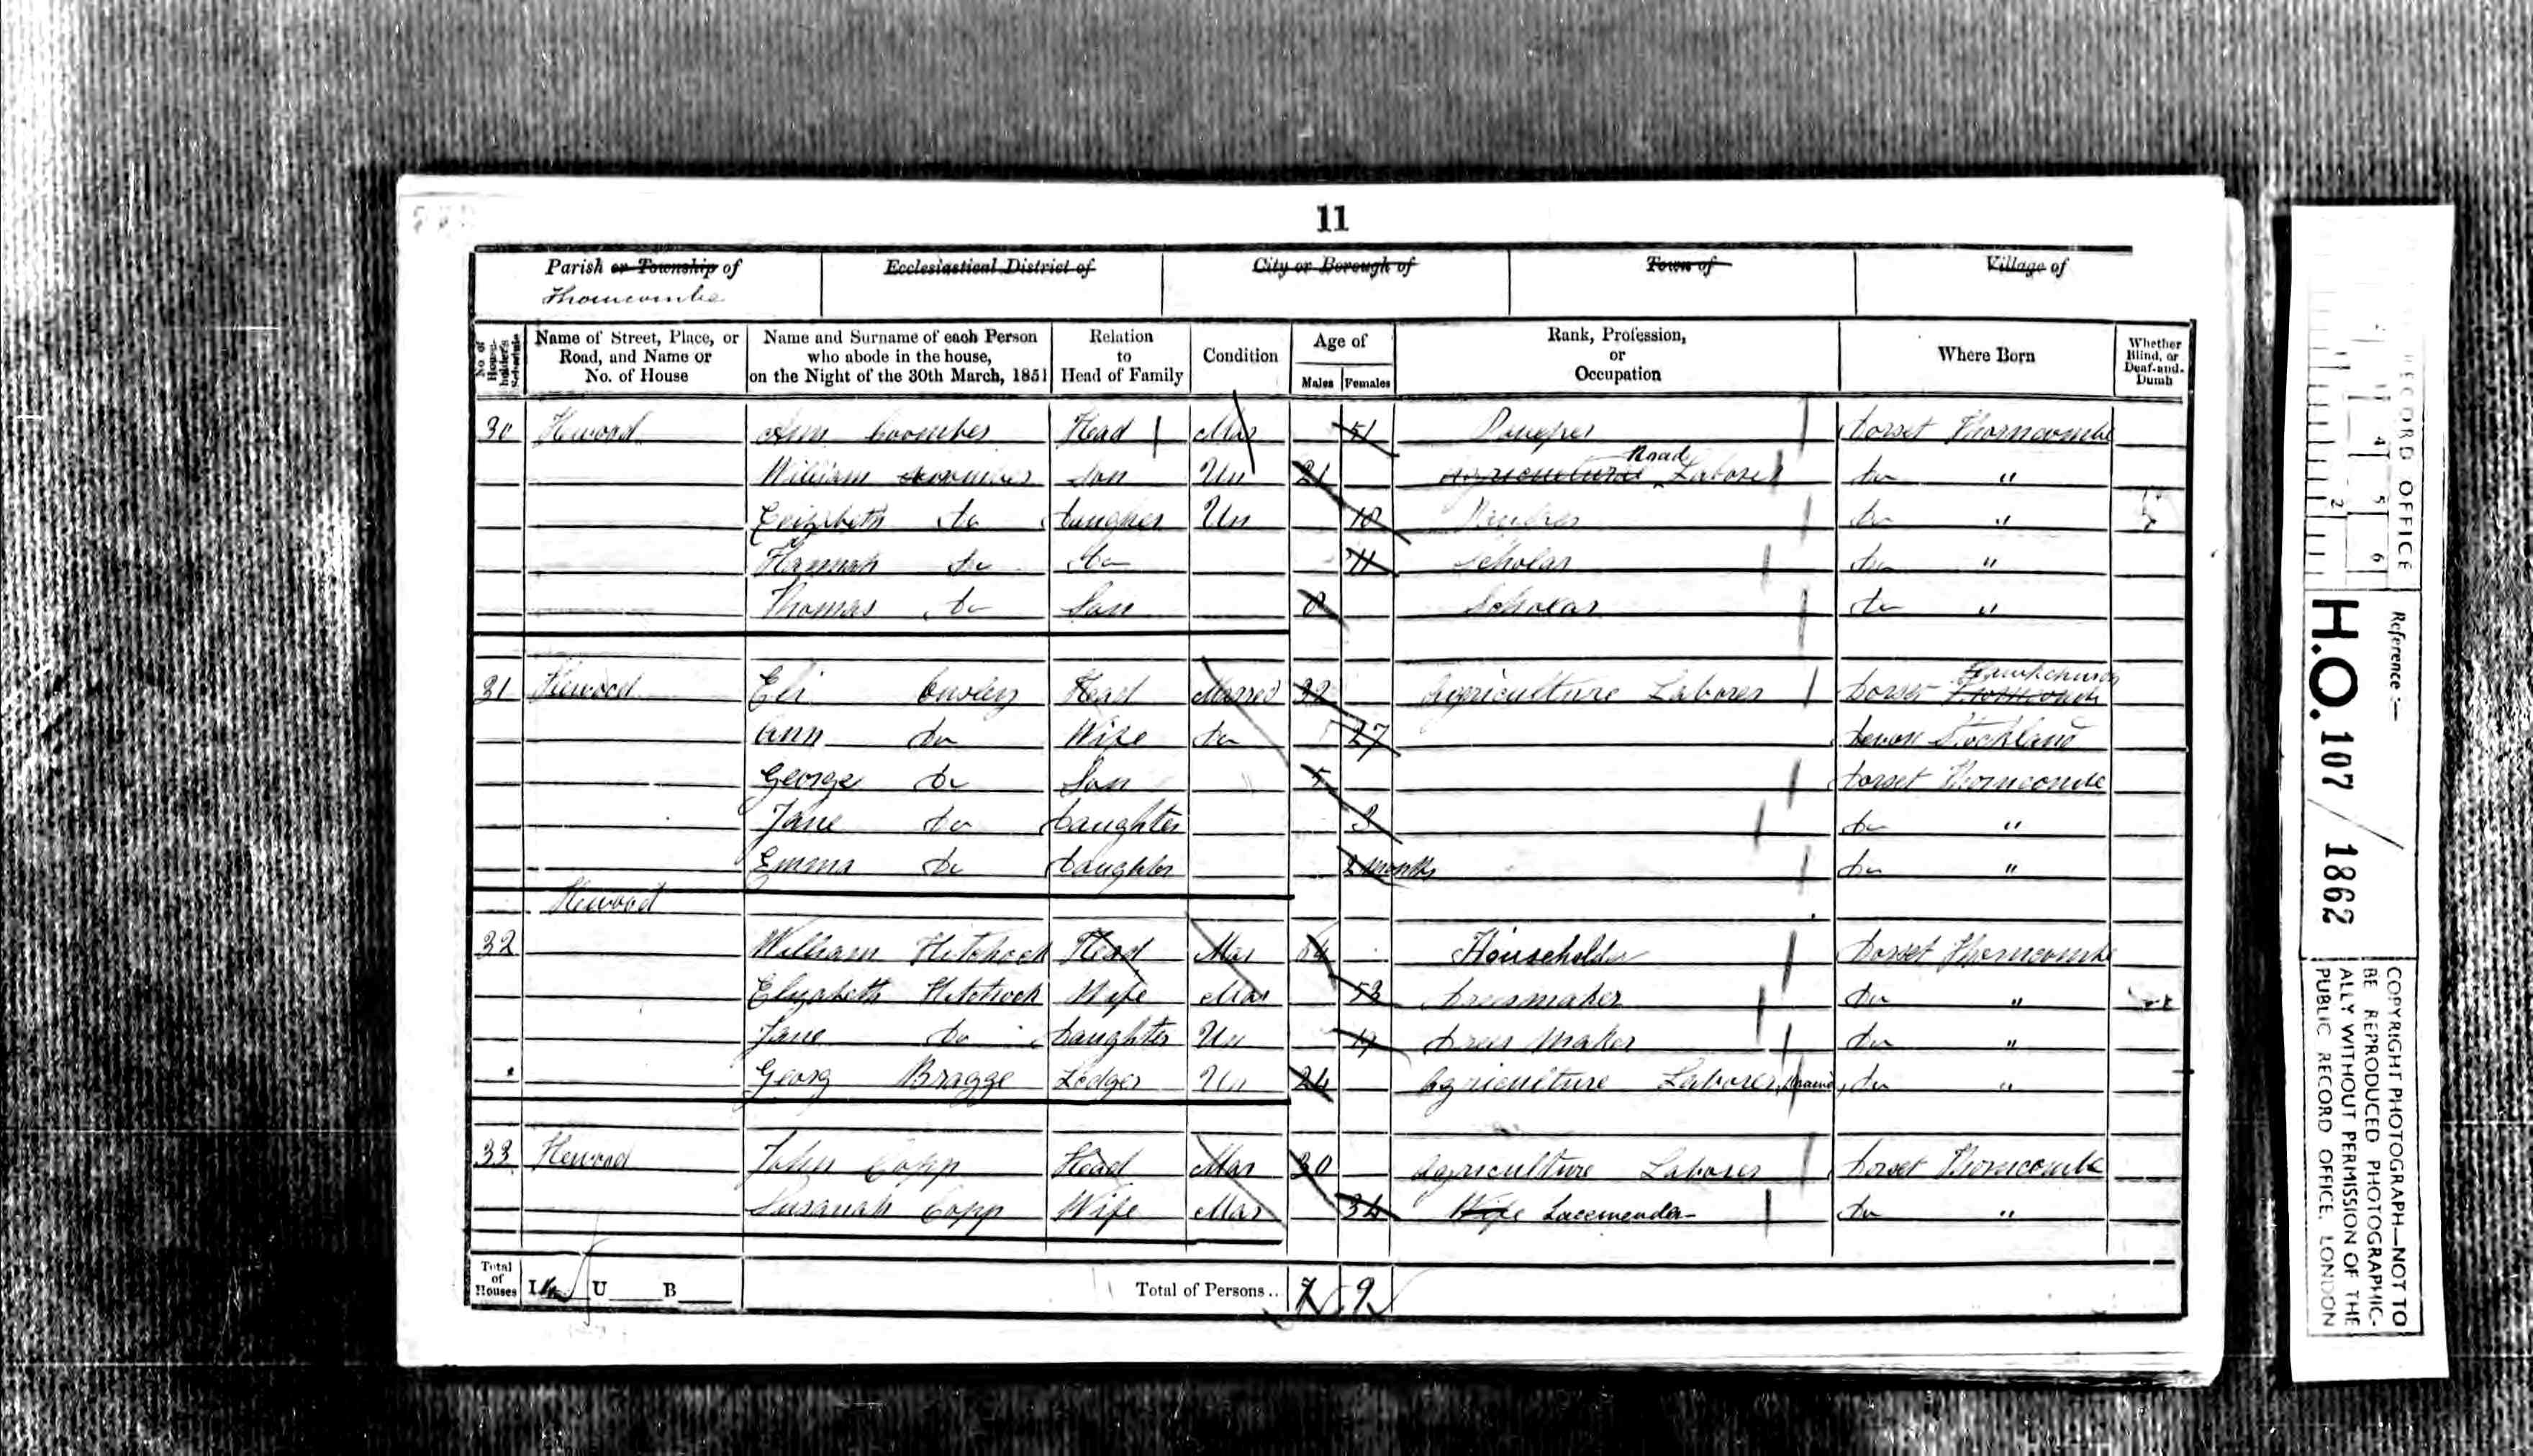 11
Parish or Township of
Thorncombe
Ecclesiastical District of
City or Borough of
Town of
Village of
No. of House-holder's Schedule
Name of Street, Place, or Road, and Name or No. of House
Name and Surname of each Person who abode in the house, on the Night of the 30th March, 1851
Relation to Head of Family
Condition
Age of
Males
Females
Rank, Profession, or Occupation
Where Born
Whether Blind, or Deaf-and-Dumb
30 Hewood Ann Coombes Head Mar 51 Pauper Dorset Thorncombe
William Coombes Son Un 21 Agricultural Road Laborer Do "
Elizabeth Do Daughter Un 18 Do "
Hannah Do Do 11 Scholar Do "
Thomas Do Son 8 Scholar Do "
31 Hewood Eli Head Married 32 Agriculture Laborer Dorset Thorncombe Hawkchurch
Ann Do Wife Do 27 Devon Stockland
George Do Son 5 Dorset Thorncombe
Jane Do Daughter 3 Do "
Emma Do Daughter 2 months Do "
Hewood
32 William Hitchcock Head Mar 64 Householder Dorset Thorncombe
Elizabeth Hitchcock Wife Mar 53 Dressmaker Do "
Jane Do Daughter Un 19 Dress Maker Do "
Georg Bragge Lodger Un 24 Agriculture Laborer Do "
33 Hewood John Copp Head Mar 30 Agriculture Laborer Dorset Thorncombe
Susanah Copp Wife Mar 34 Wife Lacemender Do "
Total of Houses I U B Total of Persons.. 7 9
RECORD OFFICE
1 2 4 5 6
Reference :—
H.O. 107 / 1862
COPYRIGHT PHOTOGRAPH—NOT TO
BE REPRODUCED PHOTOGRAPHIC-
ALLY WITHOUT PERMISSION OF THE
PUBLIC RECORD OFFICE, LONDON